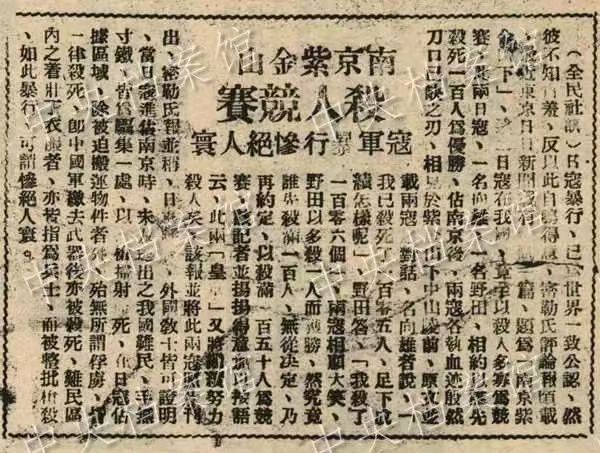 南京紫金山
殺人競賽
寇軍暴行慘絕人寰
（全民社訊）日寇暴行、已爲世界一致公認、然
彼不知自羞、反以此自鳴得意、密勒氏評論報頃載
、最近東京日日新聞載有一篇、題爲南京紫
金山下」、二日寇在我國、竟至以殺人多寡爲競
賽、此兩日寇、一名向雄一名野田、相約以能先
殺死一百人爲優勝、佔南京後、兩寇各執血迹殷然
刀口已缺之刃、相見於紫金山下中山陵前、原文並
載兩寇之對話、名向雄者說、「
我已殺死了一百零五人、足下成
績怎樣呢」、野田答、「我殺了
一百零六個」、兩寇相顧大笑、
野田以多殺一人而獲勝、然究竟
誰先殺滿一百人、無從決定、乃
再約定、以殺滿一百五十人爲競
賽、該記者並揚揚得意加以按語
云、此兩「皇軍」又將繼續努力
殺人矣、該報並將此兩寇照片刊
出、密勒氏報並稱、日寇暴行、外國敎士皆可證明
、當日寇進佔南京時、未及逃出之我國難民、手無
寸鐵、皆爲驅集一處、以機槍掃射而死、在日寇佔
據區域、除被迫搬運物件者外、殆無所謂俘虜、
一律殺死、卽中國軍繳去武器後亦被殺死、難民區
內之着壯丁衣服者、亦被指爲兵士、而被整批槍殺
、如此暴行、可謂慘絕人寰。
中央档案馆
中央档案馆
中央档案馆